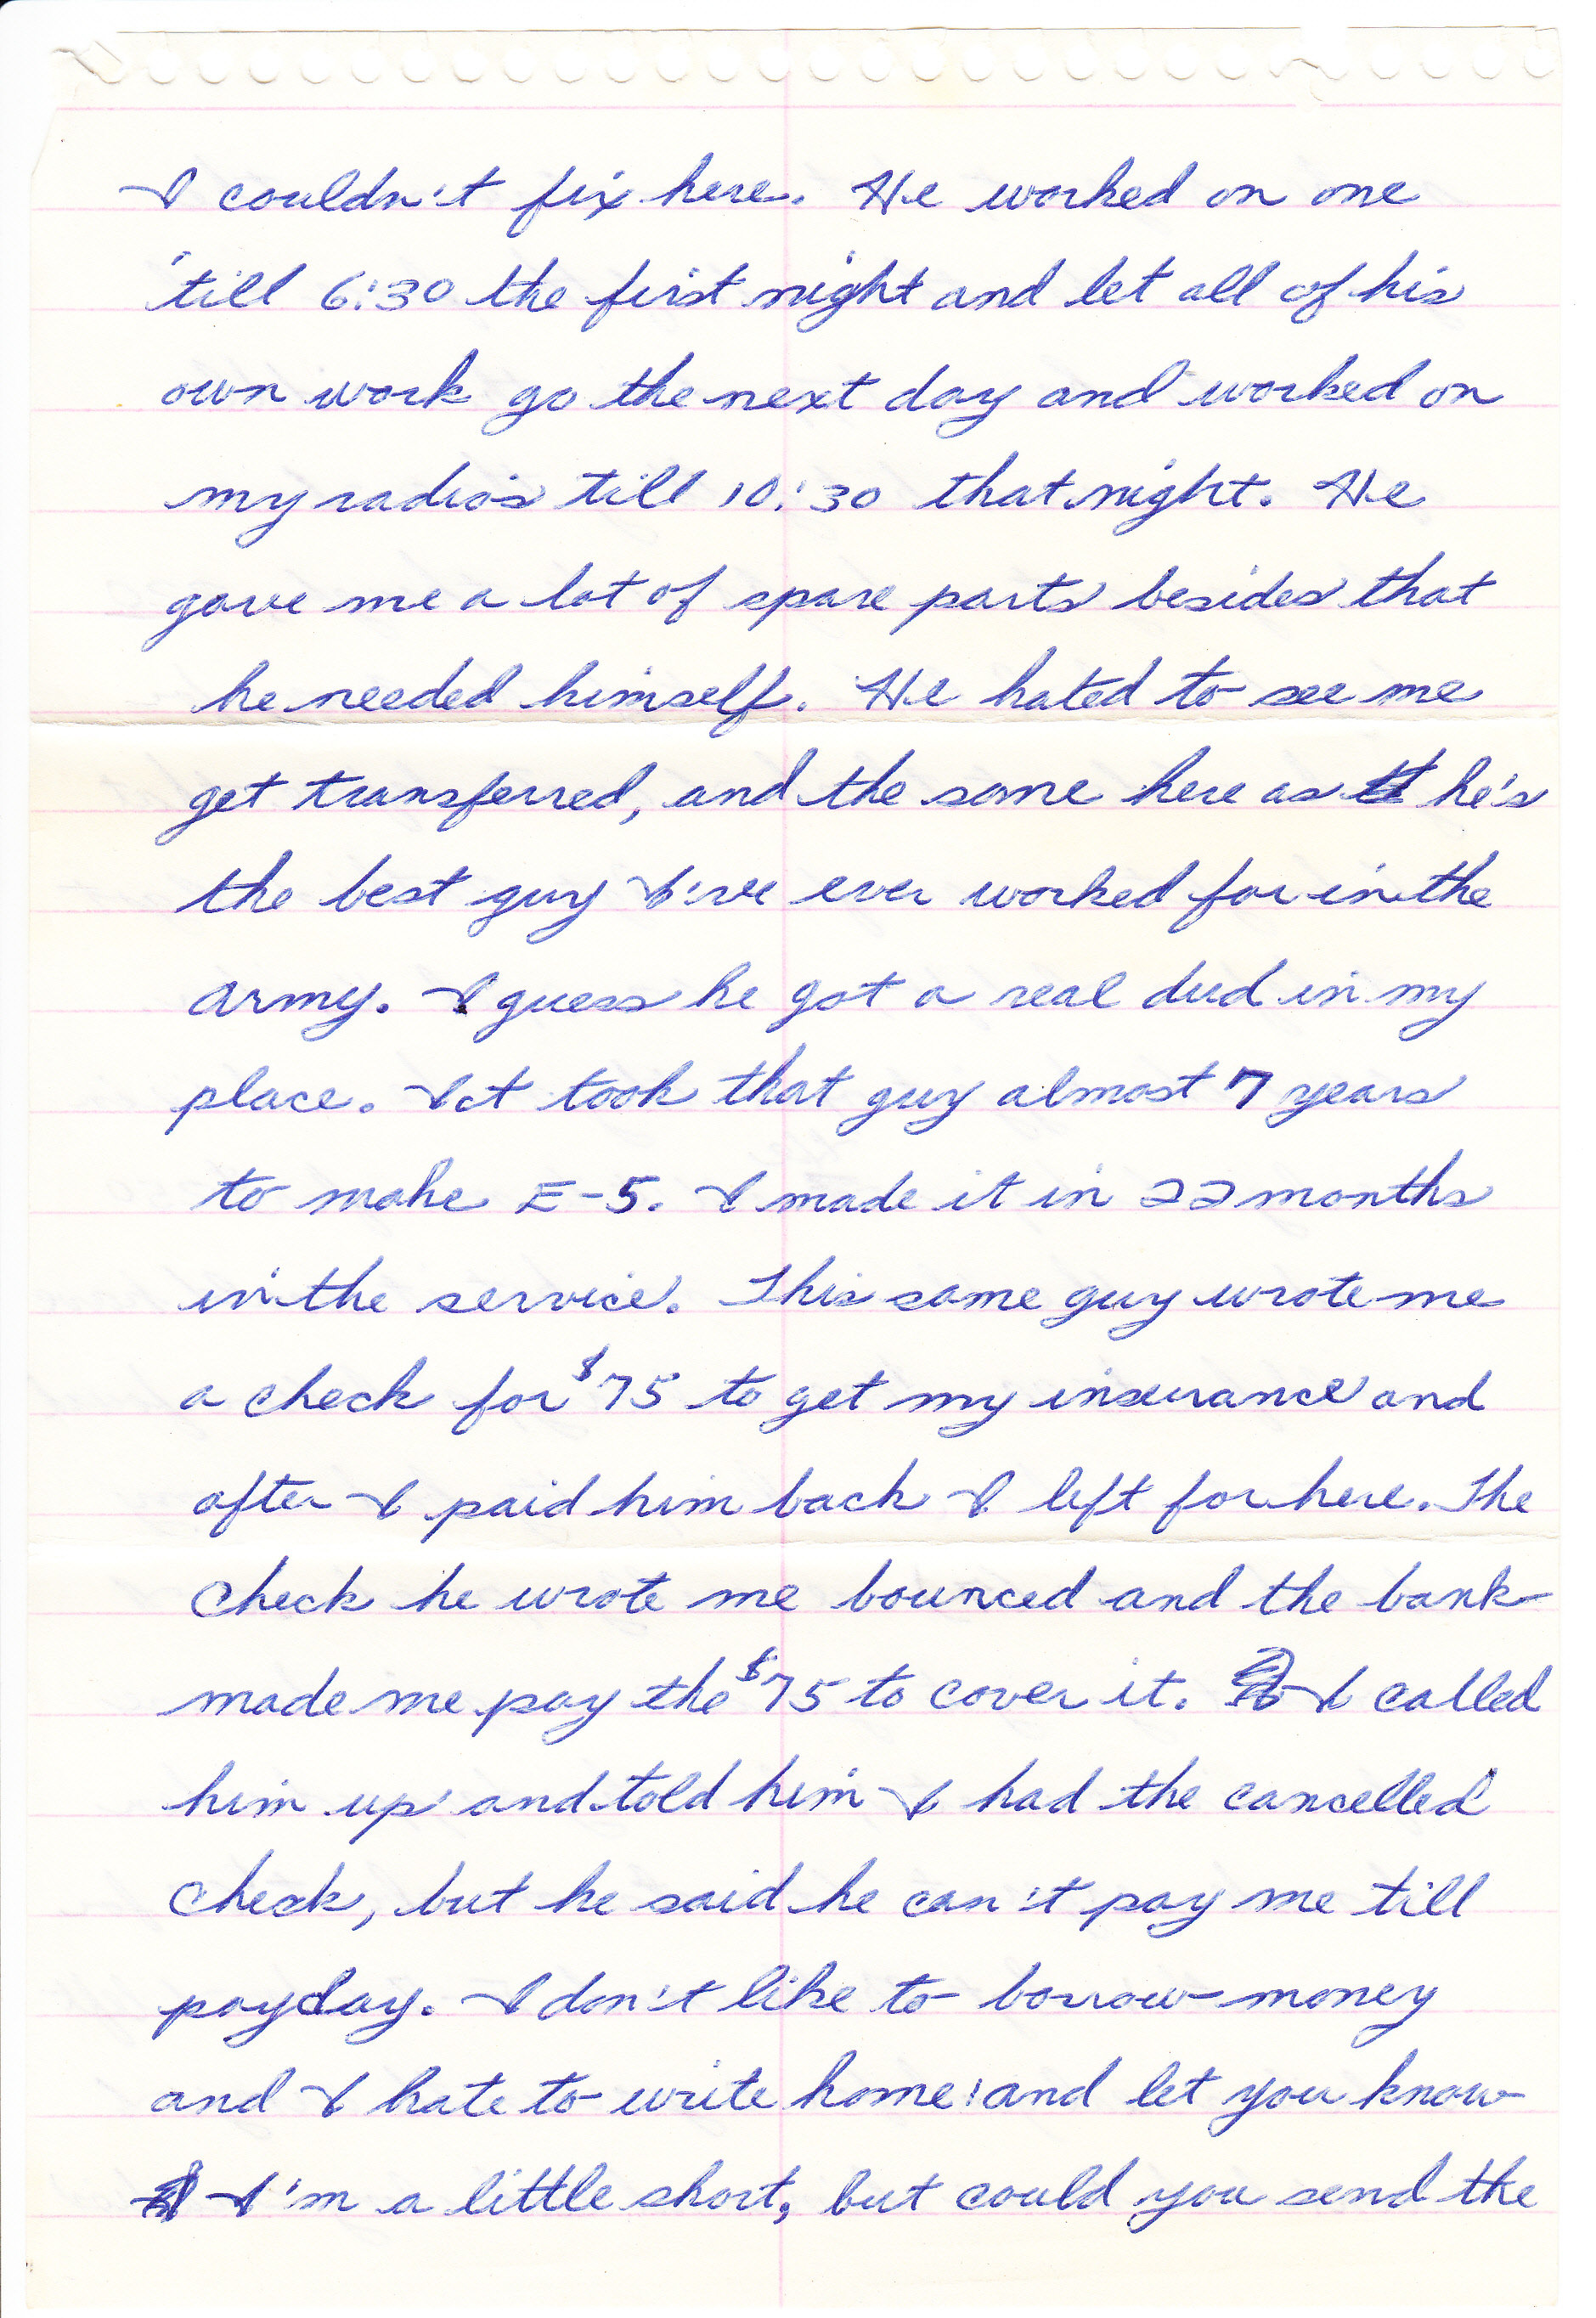 I couldn't fix here. He worked on one
'till 6:30 the first night and let all of his
own work go the next day and worked on
my radios till 10:30 that night. He
gave me a lot of spare parts besides that
he needed himself. He hated to see me
get transferred, and the same here as he's
the best guy I've ever worked for in the
army. I guess he got a real dud in my
place. It took that guy almost 7 years
to make E-5. I made it in 22 months
in the service. This same guy wrote me
a check for $75 to get my insurance and
after I paid him back I left for here. The
check he wrote me bounced and the bank
made me pay the $75 to cover it. I called
him up and told him I had the cancelled
check, but he said he can't pay me till
payday. I don't like to borrow money
and I hate to write home and let you know
I'm a little short, but could you send the